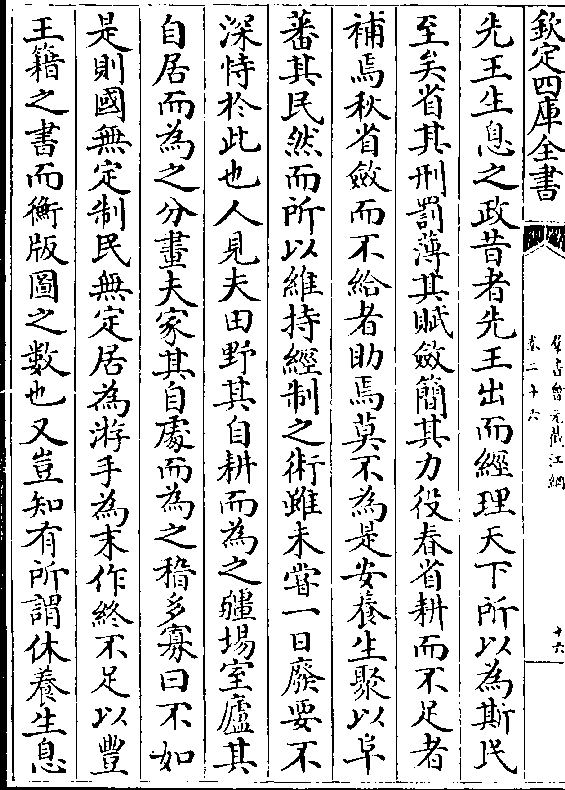 欽定四庫全書
羣書會元截江網
卷二十六
十六
先王生息之政昔者先王出而經理天下所以為斯民
至矣省其刑罰薄其賦斂簡其力役春省耕而不足者
補焉秋省斂而不給者助焉莫不為是安養生聚以阜
蕃其民然而所以維持經制之術雖未嘗一日廢要不
深恃於此也人見夫田野其自耕而為之疆場室廬其
自居而為之分畫夫家其自處而為之稽多寡曰不如
是則國無定制民無定居為游手為末作終不足以豐
王籍之書而衡版圖之數也又豈知有所謂休養生息